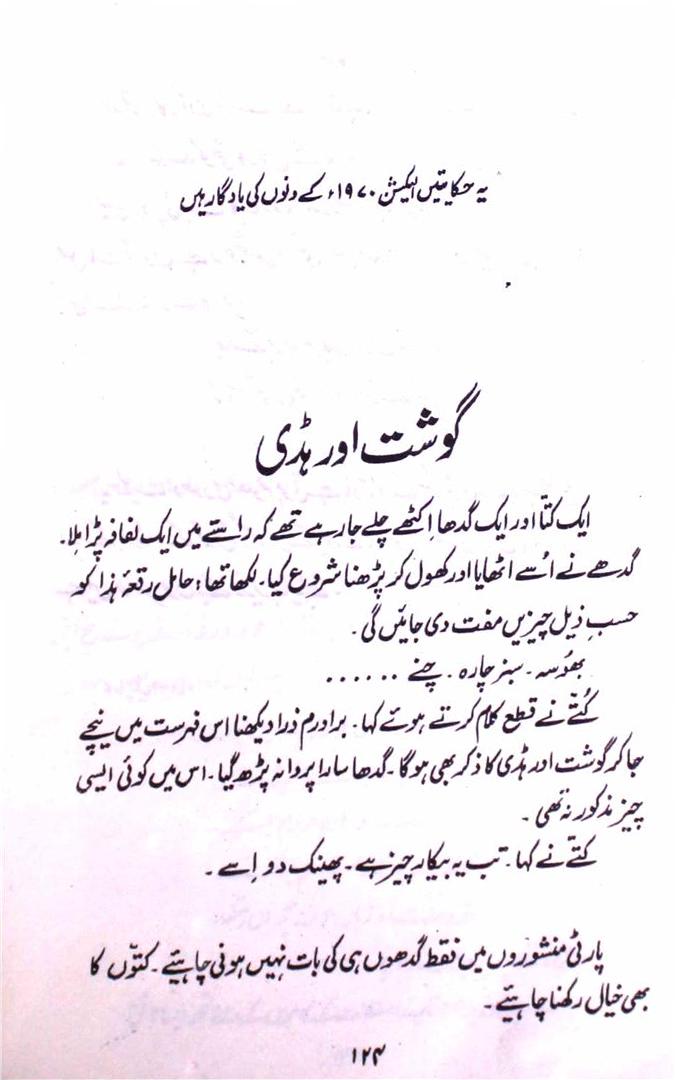 یہ حکایتیں الیکشن ۱۹۷۰ء کے دنوں کی یادگار ہیں
گوشت اور ہڈی
ایک کتّا اور ایک گدھا اِکٹھے چلے جا رہے تھے کہ راستے میں ایک لفافہ پڑا مِلا۔
گدھے نے اُسے اٹھایا اور کھول کر پڑھنا شروع کیا۔ لکھا تھا؛ حامل رقعۂ ہذا کو
حسبِ ذیل چیزیں مفت دی جائیں گی۔
بھُوسہ۔ سبز چارہ۔ چنے ......
کُتّے نے قطع کلام کرتے ہوئے کہا۔ برادرم ذرا دیکھنا اس فہرست میں نیچے
جا کر گوشت اور ہڈی کا ذکر بھی ہو گا۔ گدھا سارا پروانہ پڑھ گیا۔ اس میں کوئی ایسی
چیز مذکور نہ تھی۔
کتّے نے کہا۔ تب یہ بیکار چیز ہے۔ پھینک دو اِسے۔
پارٹی منشوروں میں فقط گدھوں ہی کی بات نہیں ہونی چاہئیے۔ کتّوں کا
بھی خیال رکھنا چاہئیے۔
۱۲۴